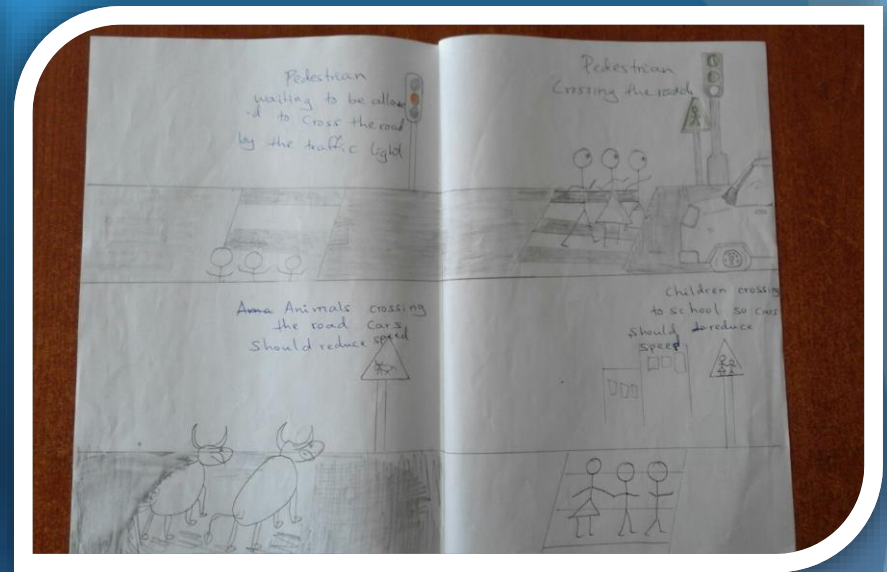 Pedestrian
waiting to be allow
-d to Cross the road
by the traffic light
Pedestrian
Crossing the roadd
Ama Animals crossing
the road Cars
Should reduce speed
Children crossing
to school so cars
Should to reduce
speed